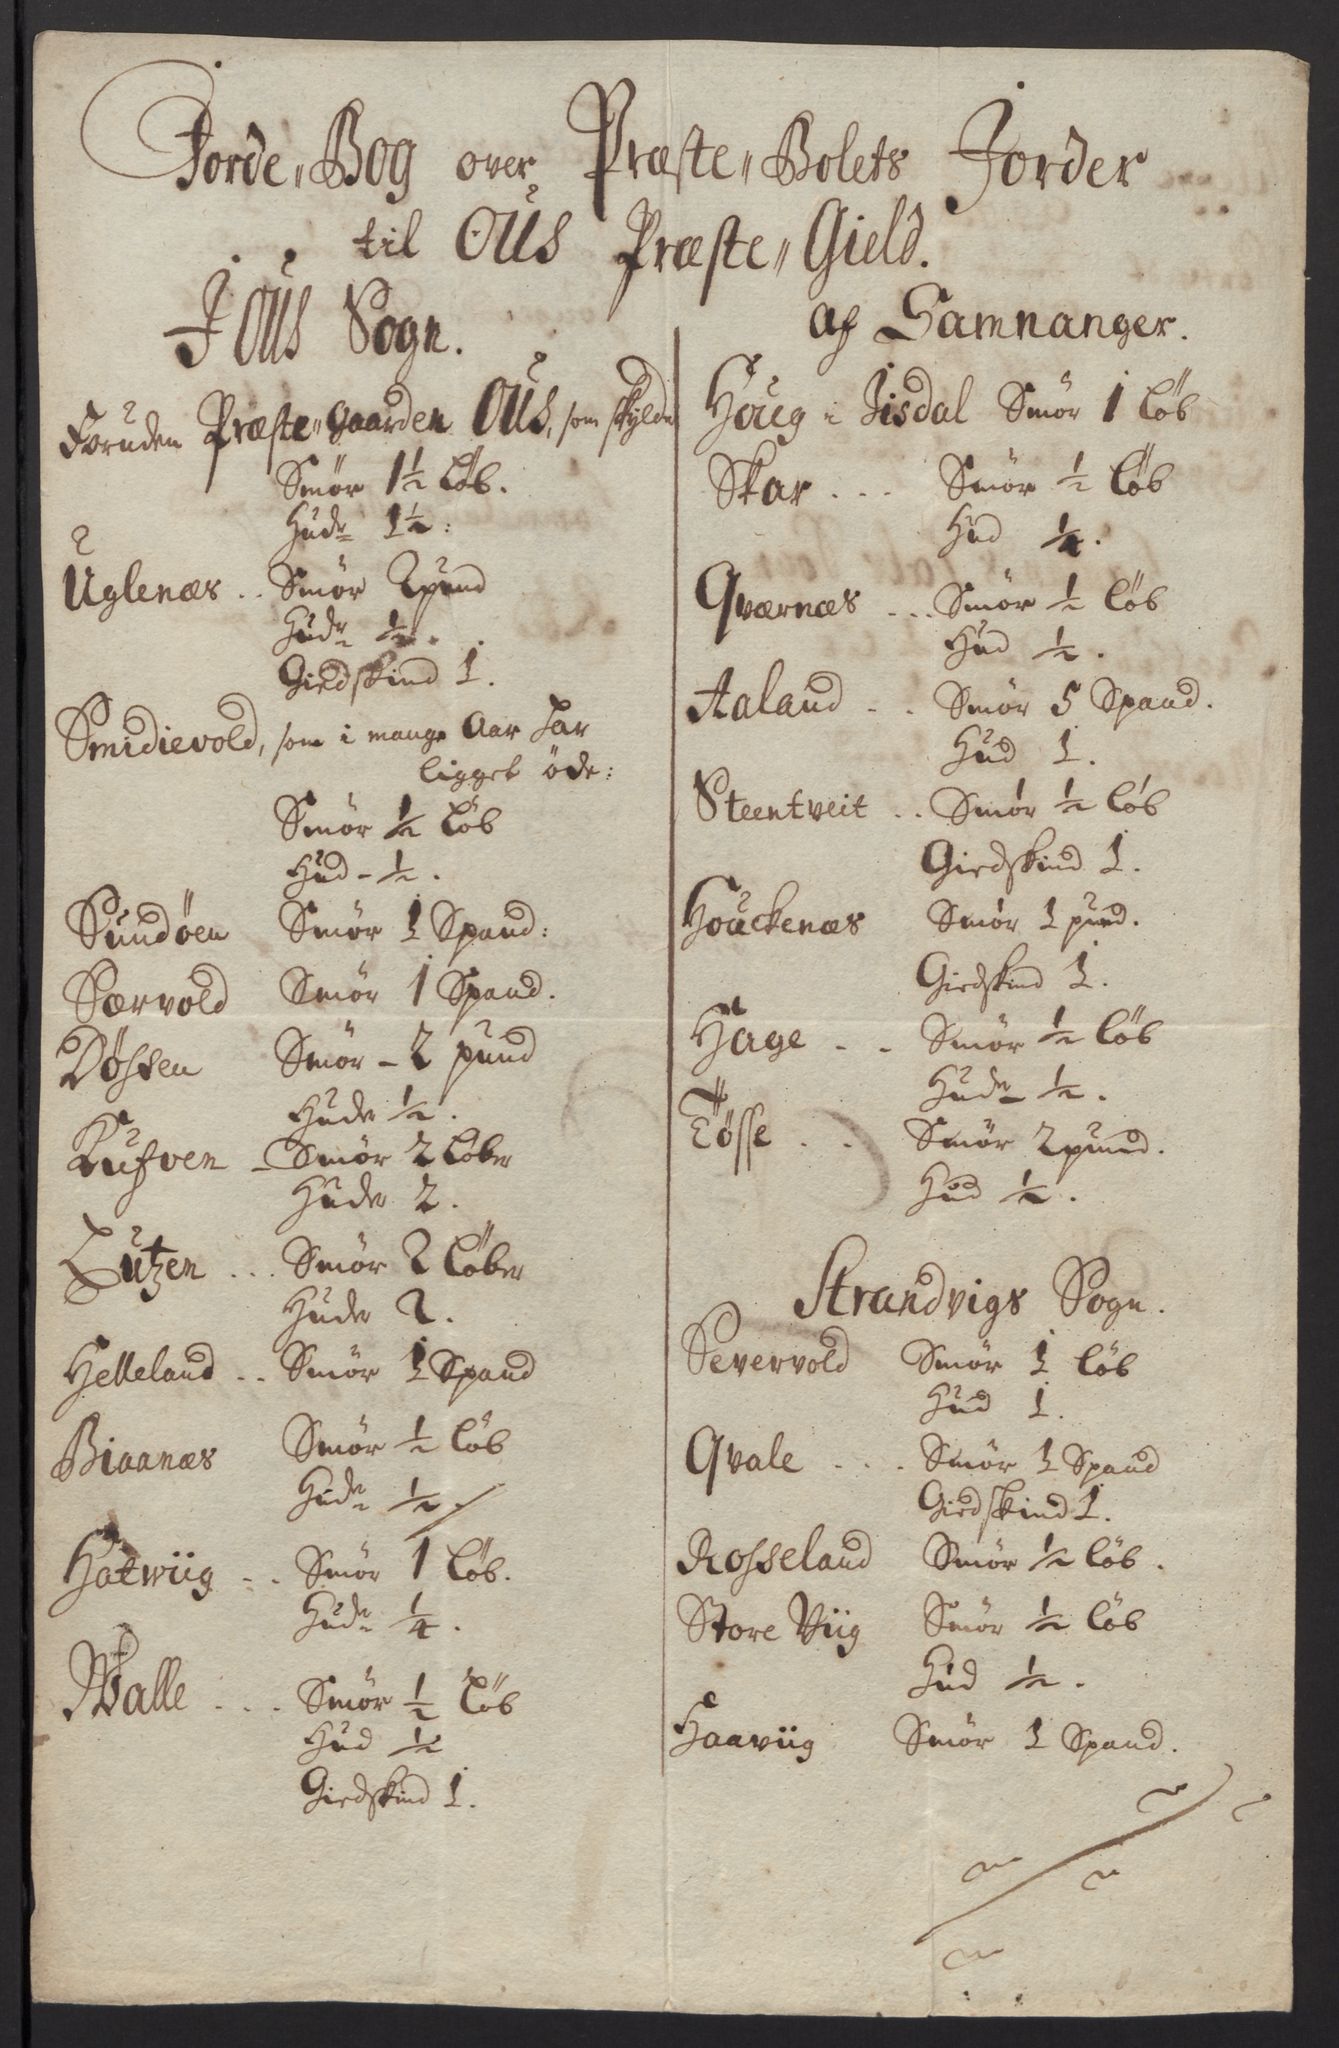 Jorde„Bog over Præste„Bolets Jorder
til Ous Præste„Gield.
I Ous Sogn.
Foruden Præste„gaarden Ous, som skylder
Smör 1½ Löb.
Hude 1½:
Uglenæs .. Smör 2 pund
Hude ½.
Giedskind 1.
Smidievold, som i mange Aar har
ligget öde:
Smör ½ Löb
Hud - ½.
Sundöen Smör 1 Spand:
Særvold Smör 1 Spand.
Døsten Smör - 2 pund
Hude ½.
Kufven - Smör 2 Löber
Hude 2.
Lutzen ... Smör 2 Löber
Hude 2.
Helleland .. Smör 1 Spand
Biaanæs Smör ½ Löb
Hude ½ /
Hatwiig .. Smör 1 Löb.
Hude ¼.
Walle ... Smör ½ Löb
Hud ½
Giedskind 1.
af Samnanger.
Houg i Jisdal Smör 1 Löb
Skar ... Smör ½ Löb
Hud ¼.
Qværnæs ... Smör ½ Löb
Hud ½.
Aaland .. Smör 5 Spand.
Hud 1.
Steentveit .. Smör ½ Löb
Giedskind 1.
Houckenæs Smör 1 pund.
Giedskind 1.
Hage .. Smör ½ Löb
Hude ½.
Tösse .. Smör 2 pund.
Hud ½.
Strandvigs Sogn.
Severvold Smör 1 Löb
Hud 1.
Qvale ... Smör 1 Spand
Giedskind 1.
Rosseland Smör ½ Löb.
Store Viig Smör ½ Löb
Hud ½.
Haaviig Smör 1 Spand.